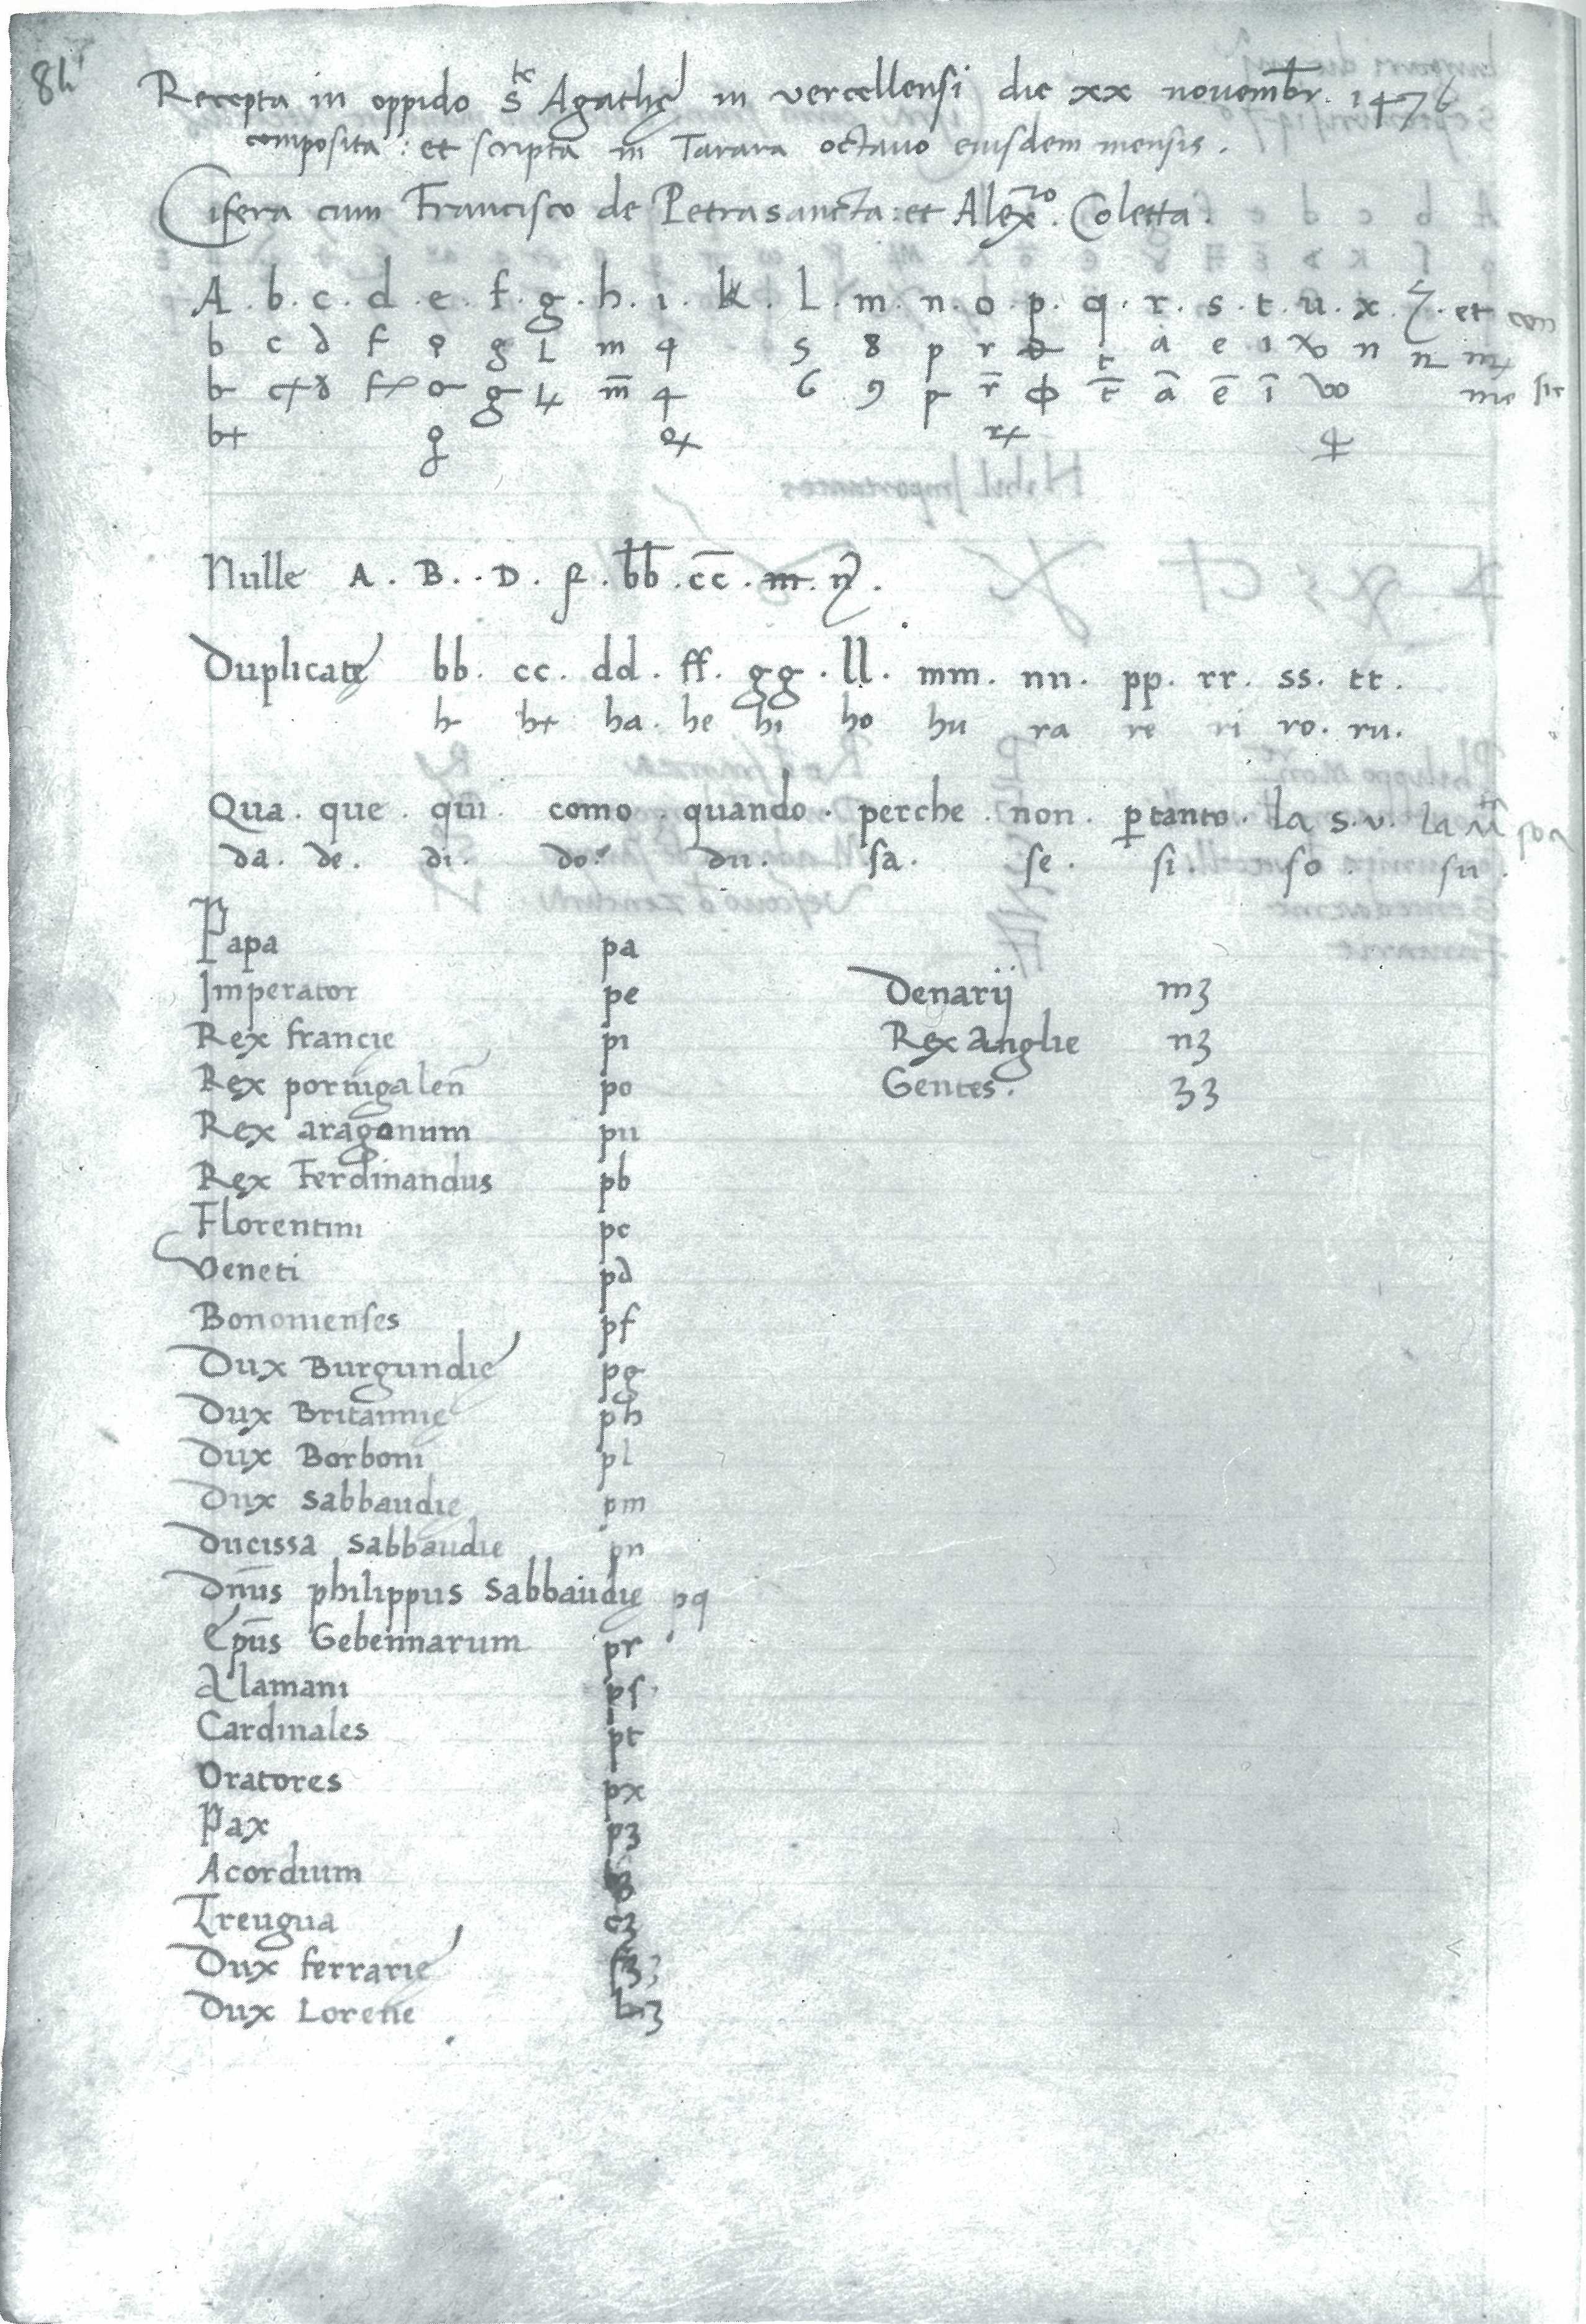 84'
Recepta in oppido S^te Agathę in vercellensi die xx novembr. 1476
composita: et scripta in Tarara octavo eiusdem mensis.
Cifera cum Francisco de Petrasancta: et Alex̄ro. Coletta.
A . b . c . d . e . f . g . h . i . k . l . m . n . o . p . q . r . s . t . u . x . z . et con
b c d f g L m 5 8 p r t a e i n
b 6 9 p r̄ ϕ t̄ ā ē ī
b+
Nulle A . B . . D . f . b̄b̄ . c̄c̄ .
Duplicatę bb . cc . dd . ff . gg . ll . mm . nn . pp . rr . ss . tt .
h h+ ha . he hi ho hu ra re ri ro . ru .
Qua . que . qui . como . quando . perche . non . ꝑtanto . la s . v . la
da . de . di . do . du . sa . se . si . so . su .
Papa pa
Imperator pe Denarij m3
Rex francie pi Rex Anglie n3
Rex portugaleñ po Gentes . 33
Rex aragonum pu
Rex Ferdinandus pb
Florentini pc
Veneti pd
Bononienses pf
Dux Burgundię pg
Dux Britannię ph
Dux Borboni pl
Dux Sabbaudię pm
Ducissa Sabbaudie pn
Dñus philippus Sabbaudię pq
Ep̄us Gebennarum pr
Alamani ps
Cardinales pt
Oratores px
Pax p3
Acordium
Treugua c3
Dux ferrarię f3
Dux Lorene L3